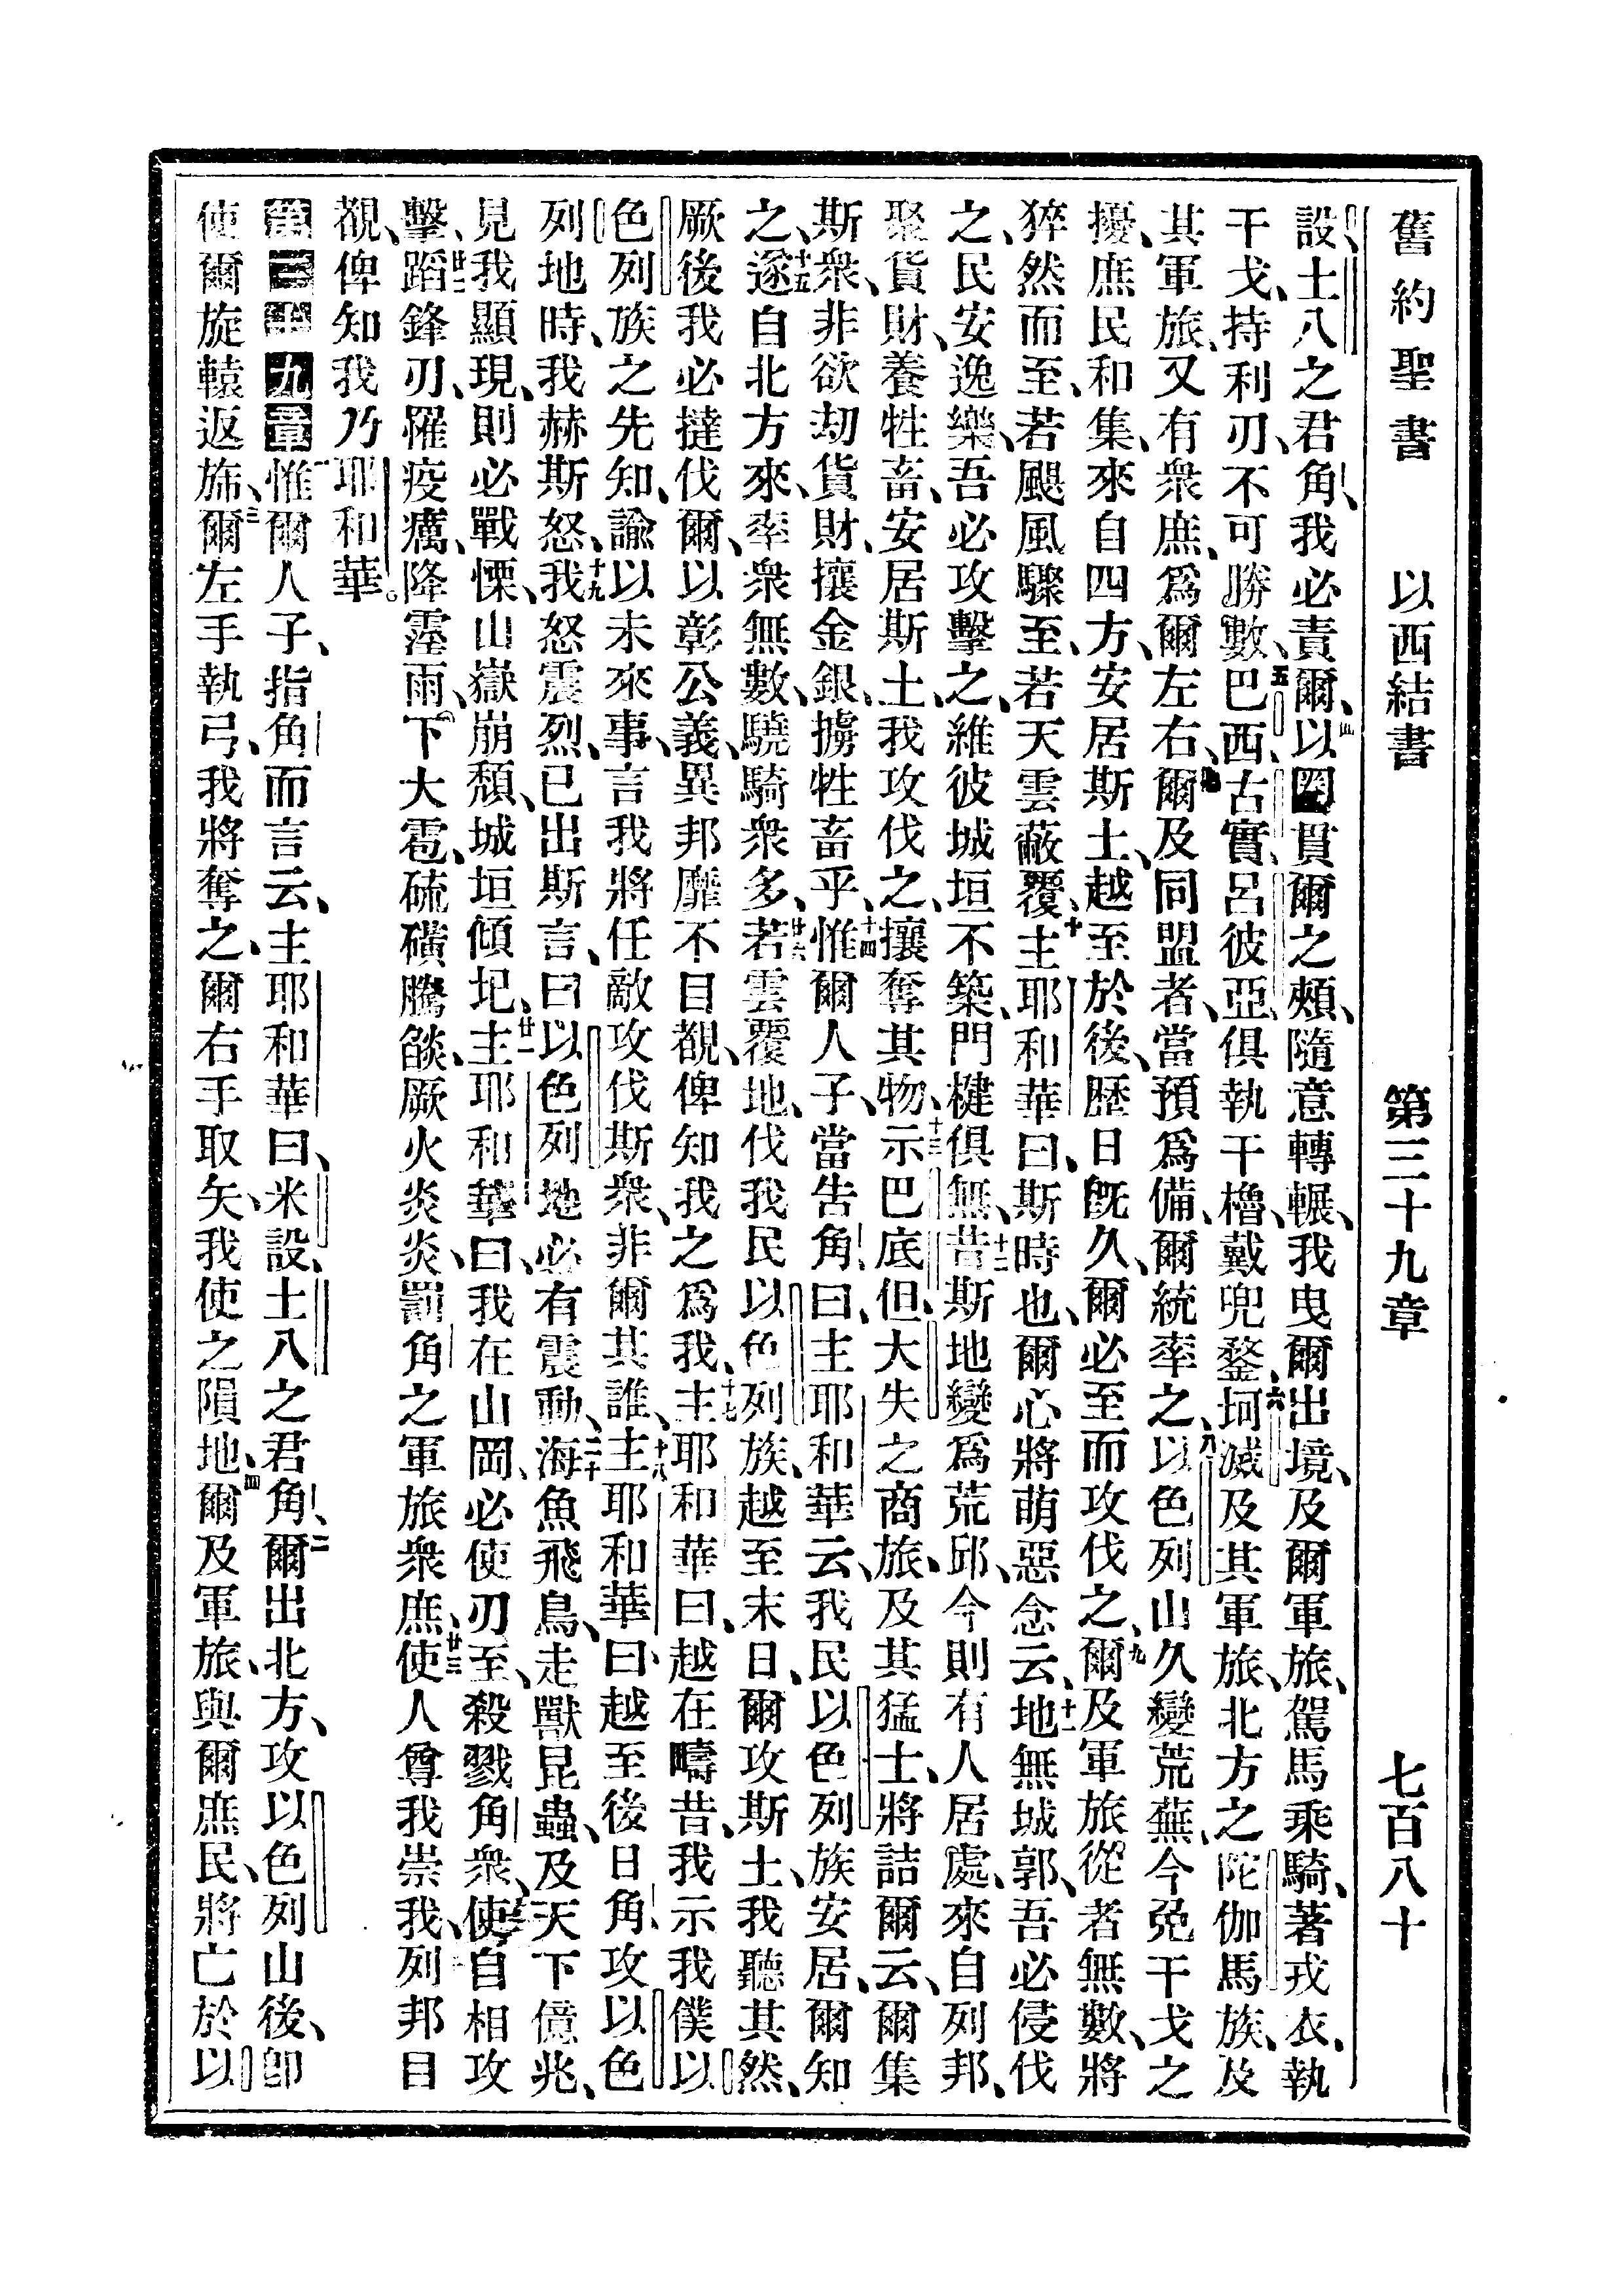 舊約聖書 以西結書 第三十九章 七百八十
設、土八之君角、我必責爾、四以圈貫爾之頰、隨意轉輾、我曳爾出境、及爾軍旅、駕馬乘騎、著戎衣、執
干戈、持利刃、不可勝數、五巴西、古實、呂彼亞、俱執干櫓、戴兜鍪、六坷滅及其軍旅、北方之陀伽馬族、及
其軍旅、又有衆庶、爲爾左右、七爾及同盟者、當預爲備、爾統率之、八以色列山久變荒蕪、今免干戈之
擾、庶民和集、來自四方、安居斯土、越至於後、歷日旣久、爾必至而攻伐之、九爾及軍旅從者無數、將
猝然而至、若颶風驟至、若天雲蔽覆、十主耶和華曰、斯時也、爾心將萌惡念云、十一地無城郭、吾必侵伐
之、民安逸樂、吾必攻擊之、維彼城垣不築、門楗俱無、十二昔斯地變爲荒邱、今則有人居處、來自列邦、
聚貨財、養牲畜、安居斯土、我攻伐之、攘奪其物、十三示巴底但、大失之商旅、及其猛士、將詰爾云、爾集
斯衆、非欲劫貨財、攘金銀、擄牲畜乎、十四惟爾人子、當告角曰、主耶和華云、我民以色列族安居、爾知
之、十五遂自北方來、率衆無數、驍騎衆多、十六若雲覆地、伐我民以色列族、越至末日、爾攻斯土、我聽其然、
厥後我必撻伐爾、以彰公義、異邦靡不目覩、俾知我之爲我、十七主耶和華曰、越在疇昔、我示我僕以
色列族之先知、諭以未來事、言我將任敵攻伐斯衆、非爾其誰、十八主耶和華曰、越至後日、角攻以色
列地時、我赫斯怒、十九我怒震烈、已出斯言、曰以色列地必有震動、二十海魚飛鳥、走獸昆蟲、及天下億兆、
見我顯現、則必戰慄、山嶽崩頹、城垣傾圮、廿一主耶和華曰、我在山岡、必使刃至、殺戮角衆、使自相攻
擊、廿二蹈鋒刃、罹疫癘、降霪雨、下大雹、硫磺騰燄、厥火炎炎、罰角之軍旅衆庶、廿三使人尊我崇我、列邦目
覩、俾知我乃耶和華。
第三十九章惟爾人子、指角而言云、主耶和華曰、米設、土八之君角、二爾出北方、攻以色列山後、卽
使爾旋轅返旆、三爾左手執弓、我將奪之、爾右手取矢、我使之隕地、四爾及軍旅、與爾庶民、將亡於以